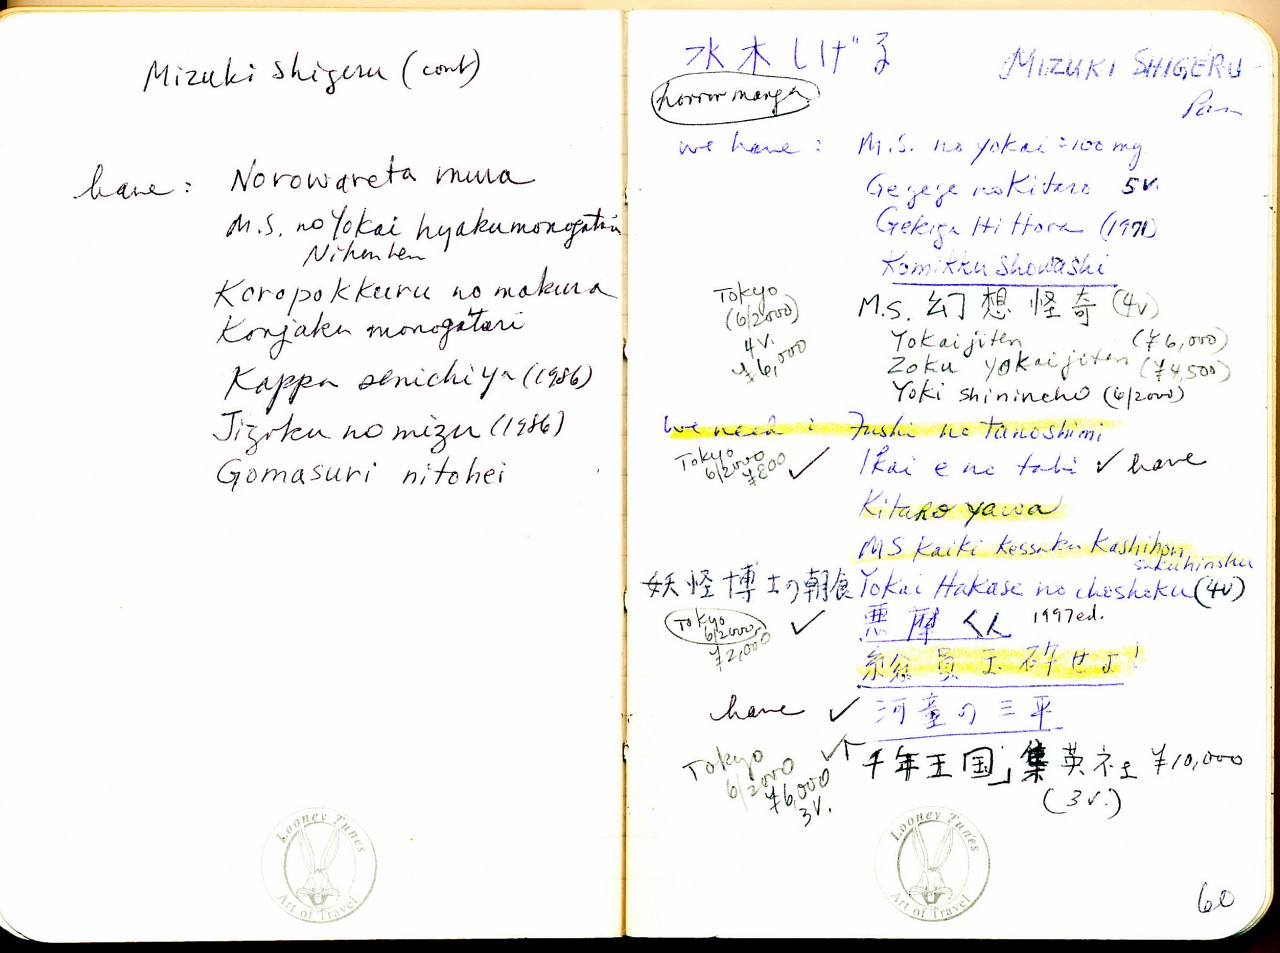 Mizuki Shigeru (cont)
have : Norowareta mura
M.S. no Yokai hyakumonogatari
Nihon hen
Koropokkuru no makura
Konjaku monogatari
Kappa senichiya (1986)
Jizoku no mizu (1986)
Gomasuri nitohei
Looney Tunes
Art of Travel
水木しげる
MIZUKI SHIGERU
horror manga
we have : M.S. no yokai 100 mg
Gegege no Kitaro 5v.
Gekiga Hittora (1971)
Komikku Showashi
Tokyo
(6/2000)
4v.
¥6,000
M.S. 幻想怪奇 (4v)
Yokaijiten (¥6,000)
Zoku yokaijiten (¥4,500)
Yoki shinincho (6/2000)
we need : Fushi no tanoshimi
Tokyo
6/2000
¥800
✓ Ikai e no tabi ✓ have
Kitaro yawa
MS Kaiki Kessaku Kashihon
sakuhinshu
妖怪博士の朝食 Yokai Hakase no choshoku (4v)
Tokyo
6/2000
¥2,000
✓ 悪摩くん 1997 ed.
員 玉砕せよ!
have ✓ 河童の三平
Tokyo
6/2000
¥6,000
3v.
✓ 千年王国」集英社 ¥10,000
(3v.)
Looney Tunes
Art of Travel
60